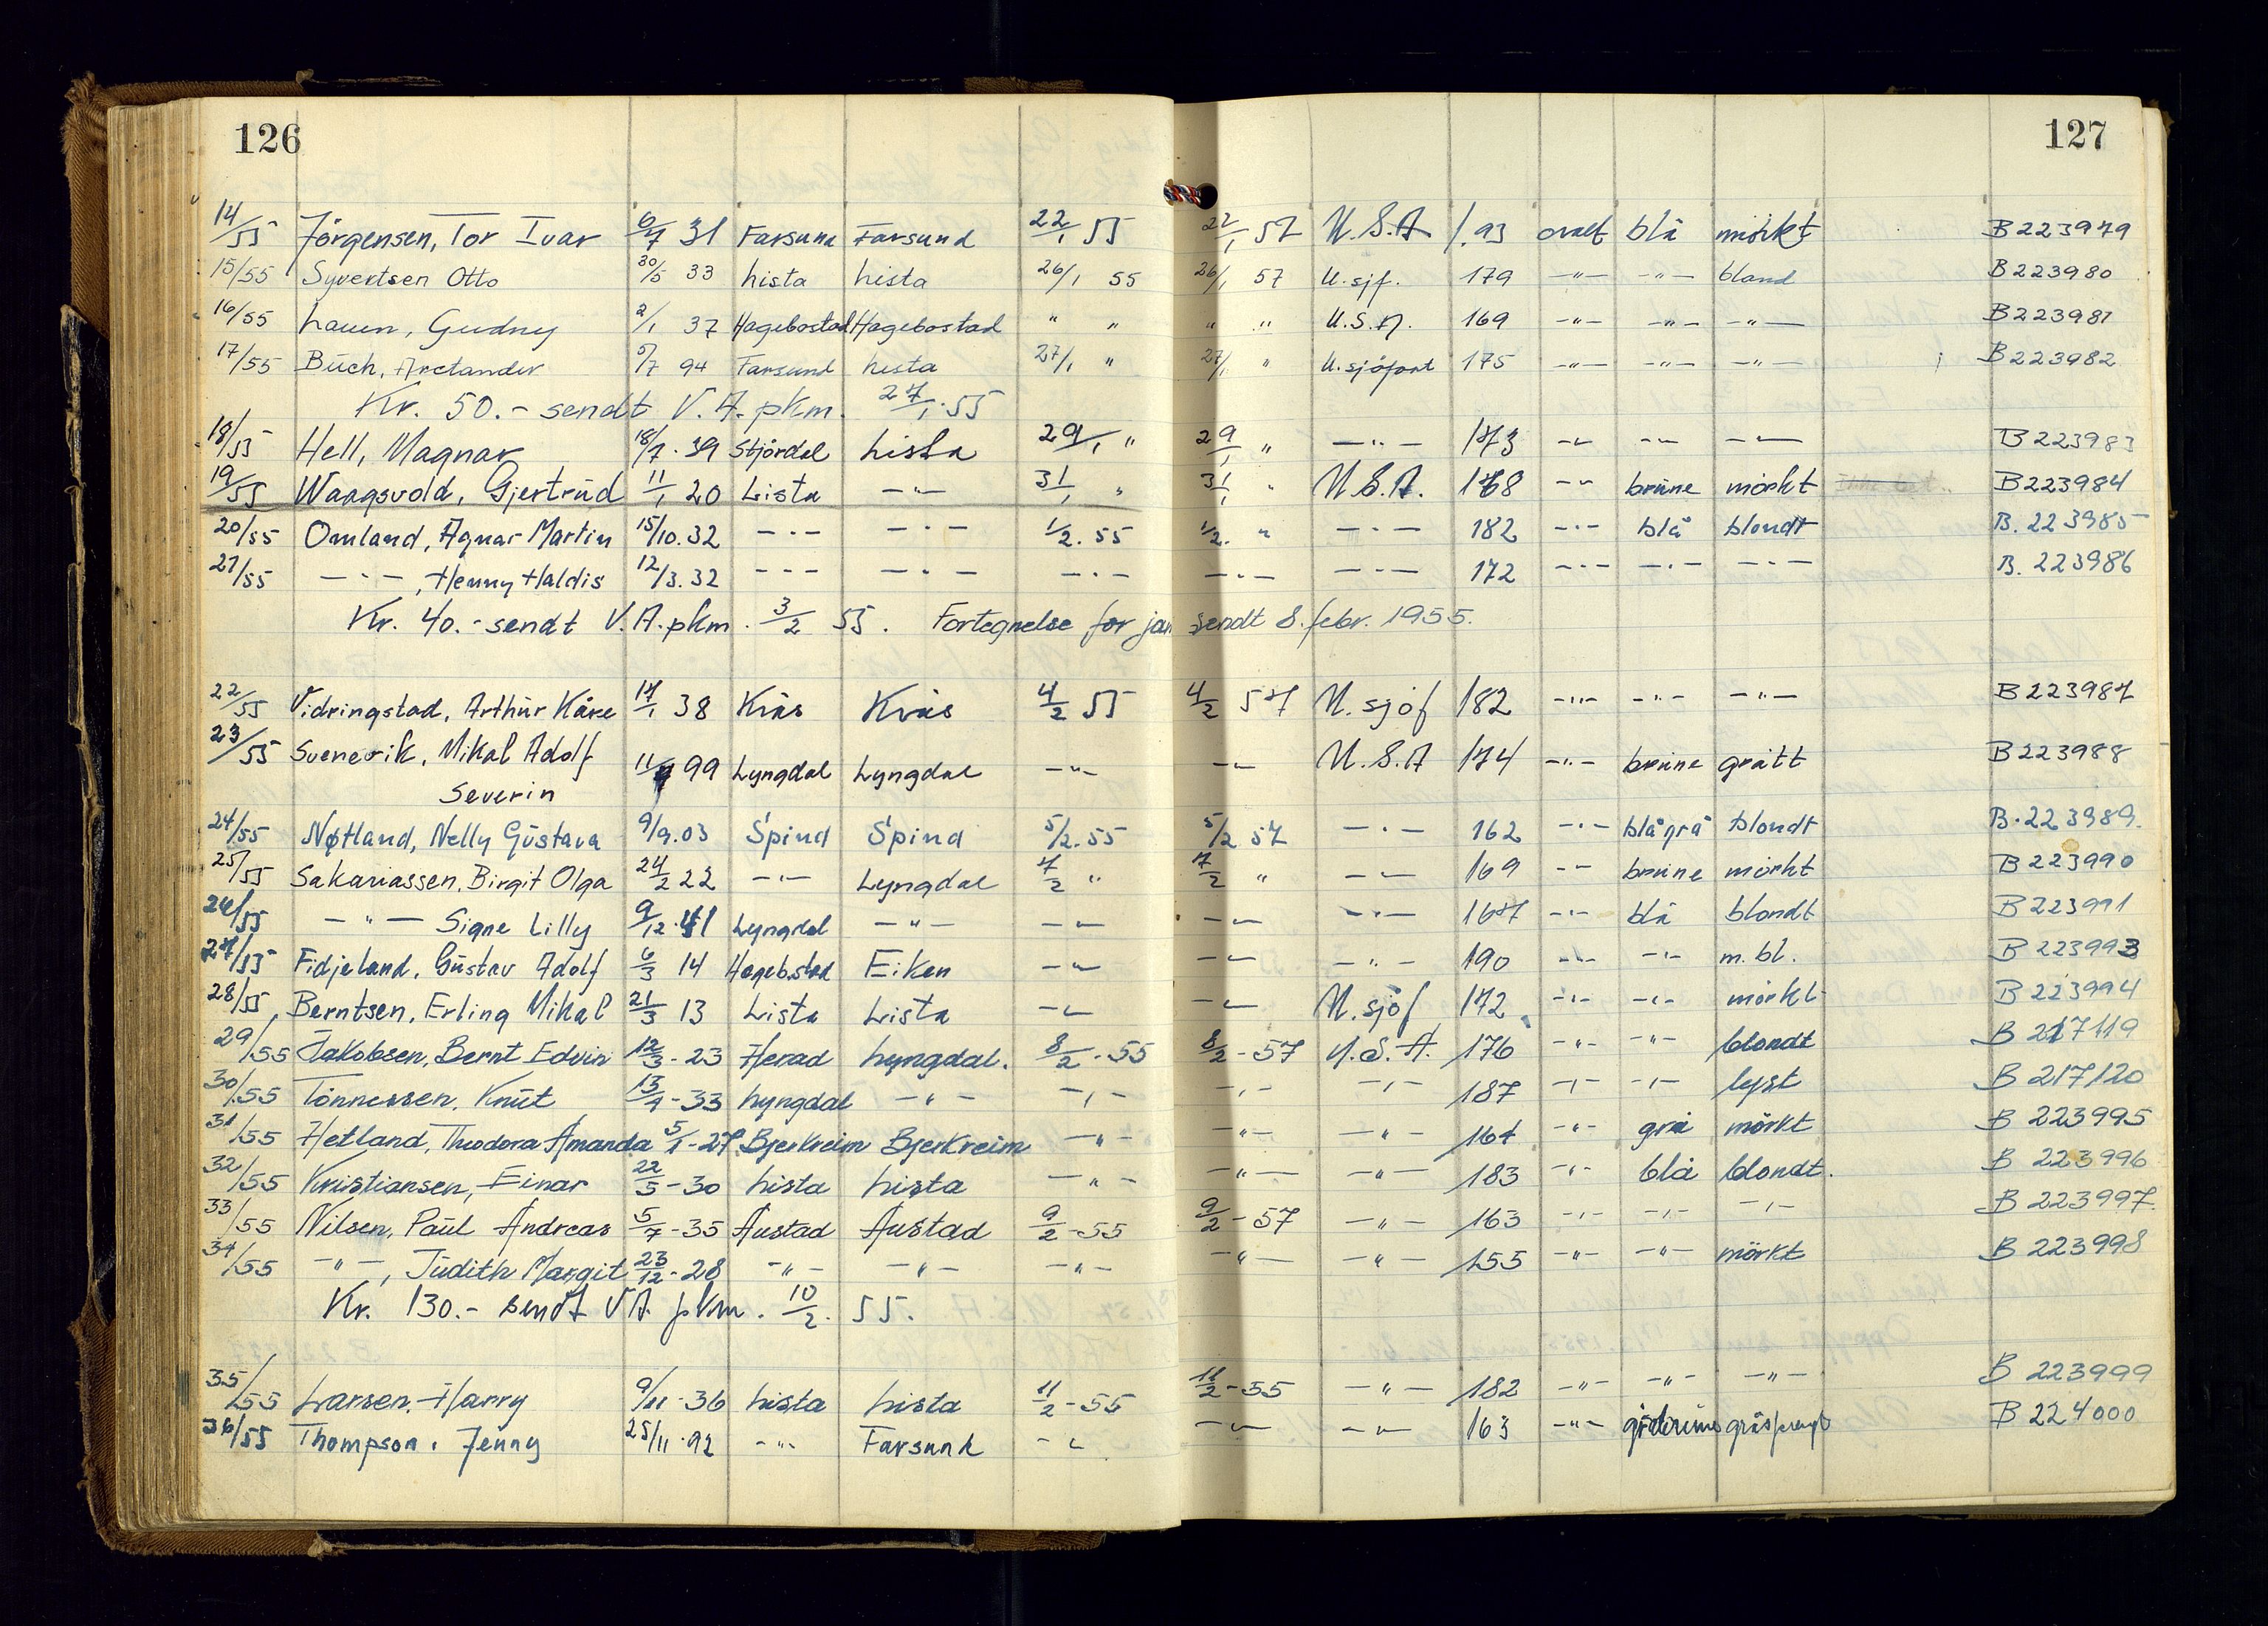 126 127
14/55 Jörgensen, Tor Ivar 6/7 31 Farsund Farsund 22/1 55 22/1 57 U.S.A 1.93 ovalt blå mörkt B 223979
15/55 Syvertsen Otto 30/5 33 Lista Lista 26/1 55 26/1 57 U. sjf. 179 -"- -"- bland B 223980
16/55 Lauen, Gudny 2/1 37 Hagebostad Hagebostad " " " " U.S.A. 169 -"- -"- -"- B 223981
17/55 Buch, Arctander 5/7 94 Farsund Lista 27/1 " 27/1 " U. sjöfart 175 -"- -"- -"- B 223982
Kr. 50.- sendt V.A. pkm. 27/1.55
18/55 Hell, Magnar 18/7.39 Stjördal Lista 29/1 " 29/1 " -"- 173 -"- -"- -"- B 223983
19/55 Waagsvold, Gjertrud 11/1 20 Lista -"- 31/1 " 31/1 " U.S.A. 168 -"- brune mörkt B 223984
20/55 Omland, Agnar Martin 15/10.32 -"- -"- 1/2. 55 1/2. " -"- 182 -"- blå blondt B. 223985
21/55 -"-, Henny Haldis 12/3.32 -"- -"- -"- -"- -"- 172 -"- -"- -"- B. 223986
Kr. 40.- sendt V.A. pkm. 3/2 55. Fortegnelse for jan sendt 8. febr. 1955.
22/55 Vidringstad, Arthur Kåre 17/1 38 Kvås Kvås 4/2 55 4/2 57 U. sjöf 182 -"- -"- -"- B 223987
23/55 Svenevik, Mikal Adolf
Severin 11/9 99 Lyngdal Lyngdal -"- -"- U.S.A 174 -"- brune grått B 223988
24/55 Nøtland, Nelly Gustava 9/9.03 Spind Spind 5/2.55 5/2 57 -"- 162 -"- blågrå blondt B. 223989.
25/55 Sakariassen, Birgit Olga 24/2 22 -"- Lyngdal 7/2 " 7/2 " -"- 169 -"- brune mörkt B 223990
26/55 -"- Signe Lilly 9/12.41 Lyngdal -"- -"- -"- -"- 167 -"- blå blondt B 223991
27/55 Fidjeland, Gustav Adolf 6/3 14 Hagebstad Eiken -"- -"- -"- 190 -"- -"- m. bl. B 223993
28/55 Berntsen, Erling Mikal 21/3 13 Lista Lista -"- -"- U. sjöf 172 -"- -"- mörkt B 223994
29/55 Jakobsen, Bernt Edvin 12/3-23 Herad Lyngdal. 8/2-55 8/2-57 U.S.A. 176 -"- -"- blondt B 217119
30/55 Tönnessen, Knut 13/4-33 Lyngdal -"- -"- -"- -"- 187 -"- -"- lyst B 217120
31/55 Hetland, Theodora Amanda 5/1-27 Bjerkreim Bjerkreim -"- -"- -"- 164 -"- grå mörkt B 223995
32/55 Kristiansen, Einar 22/5-30 Lista Lista -"- -"- -"- 183 -"- blå blondt. B 223996
33/55 Nilsen, Paul Andreas 5/7-35 Austad Austad 9/2-55 9/2-57 -"- 163 -"- -"- -"- B 223997.
34/55 -"-, Judith Margit 23/12-28 -"- -"- -"- -"- -"- 155 -"- -"- mörkt B 223998
Kr. 130.- sendt V.A. pkm. 10/2. 55.
35/55 Larsen, Harry 9/11-36 Lista Lista 11/2-55 11/2-55 -"- 182 -"- -"- -"- B 223999
36/55 Thompson, Jenny 25/11.92 -"- Farsund -"- -"- -"- 163 -"- gråbrune B 224000